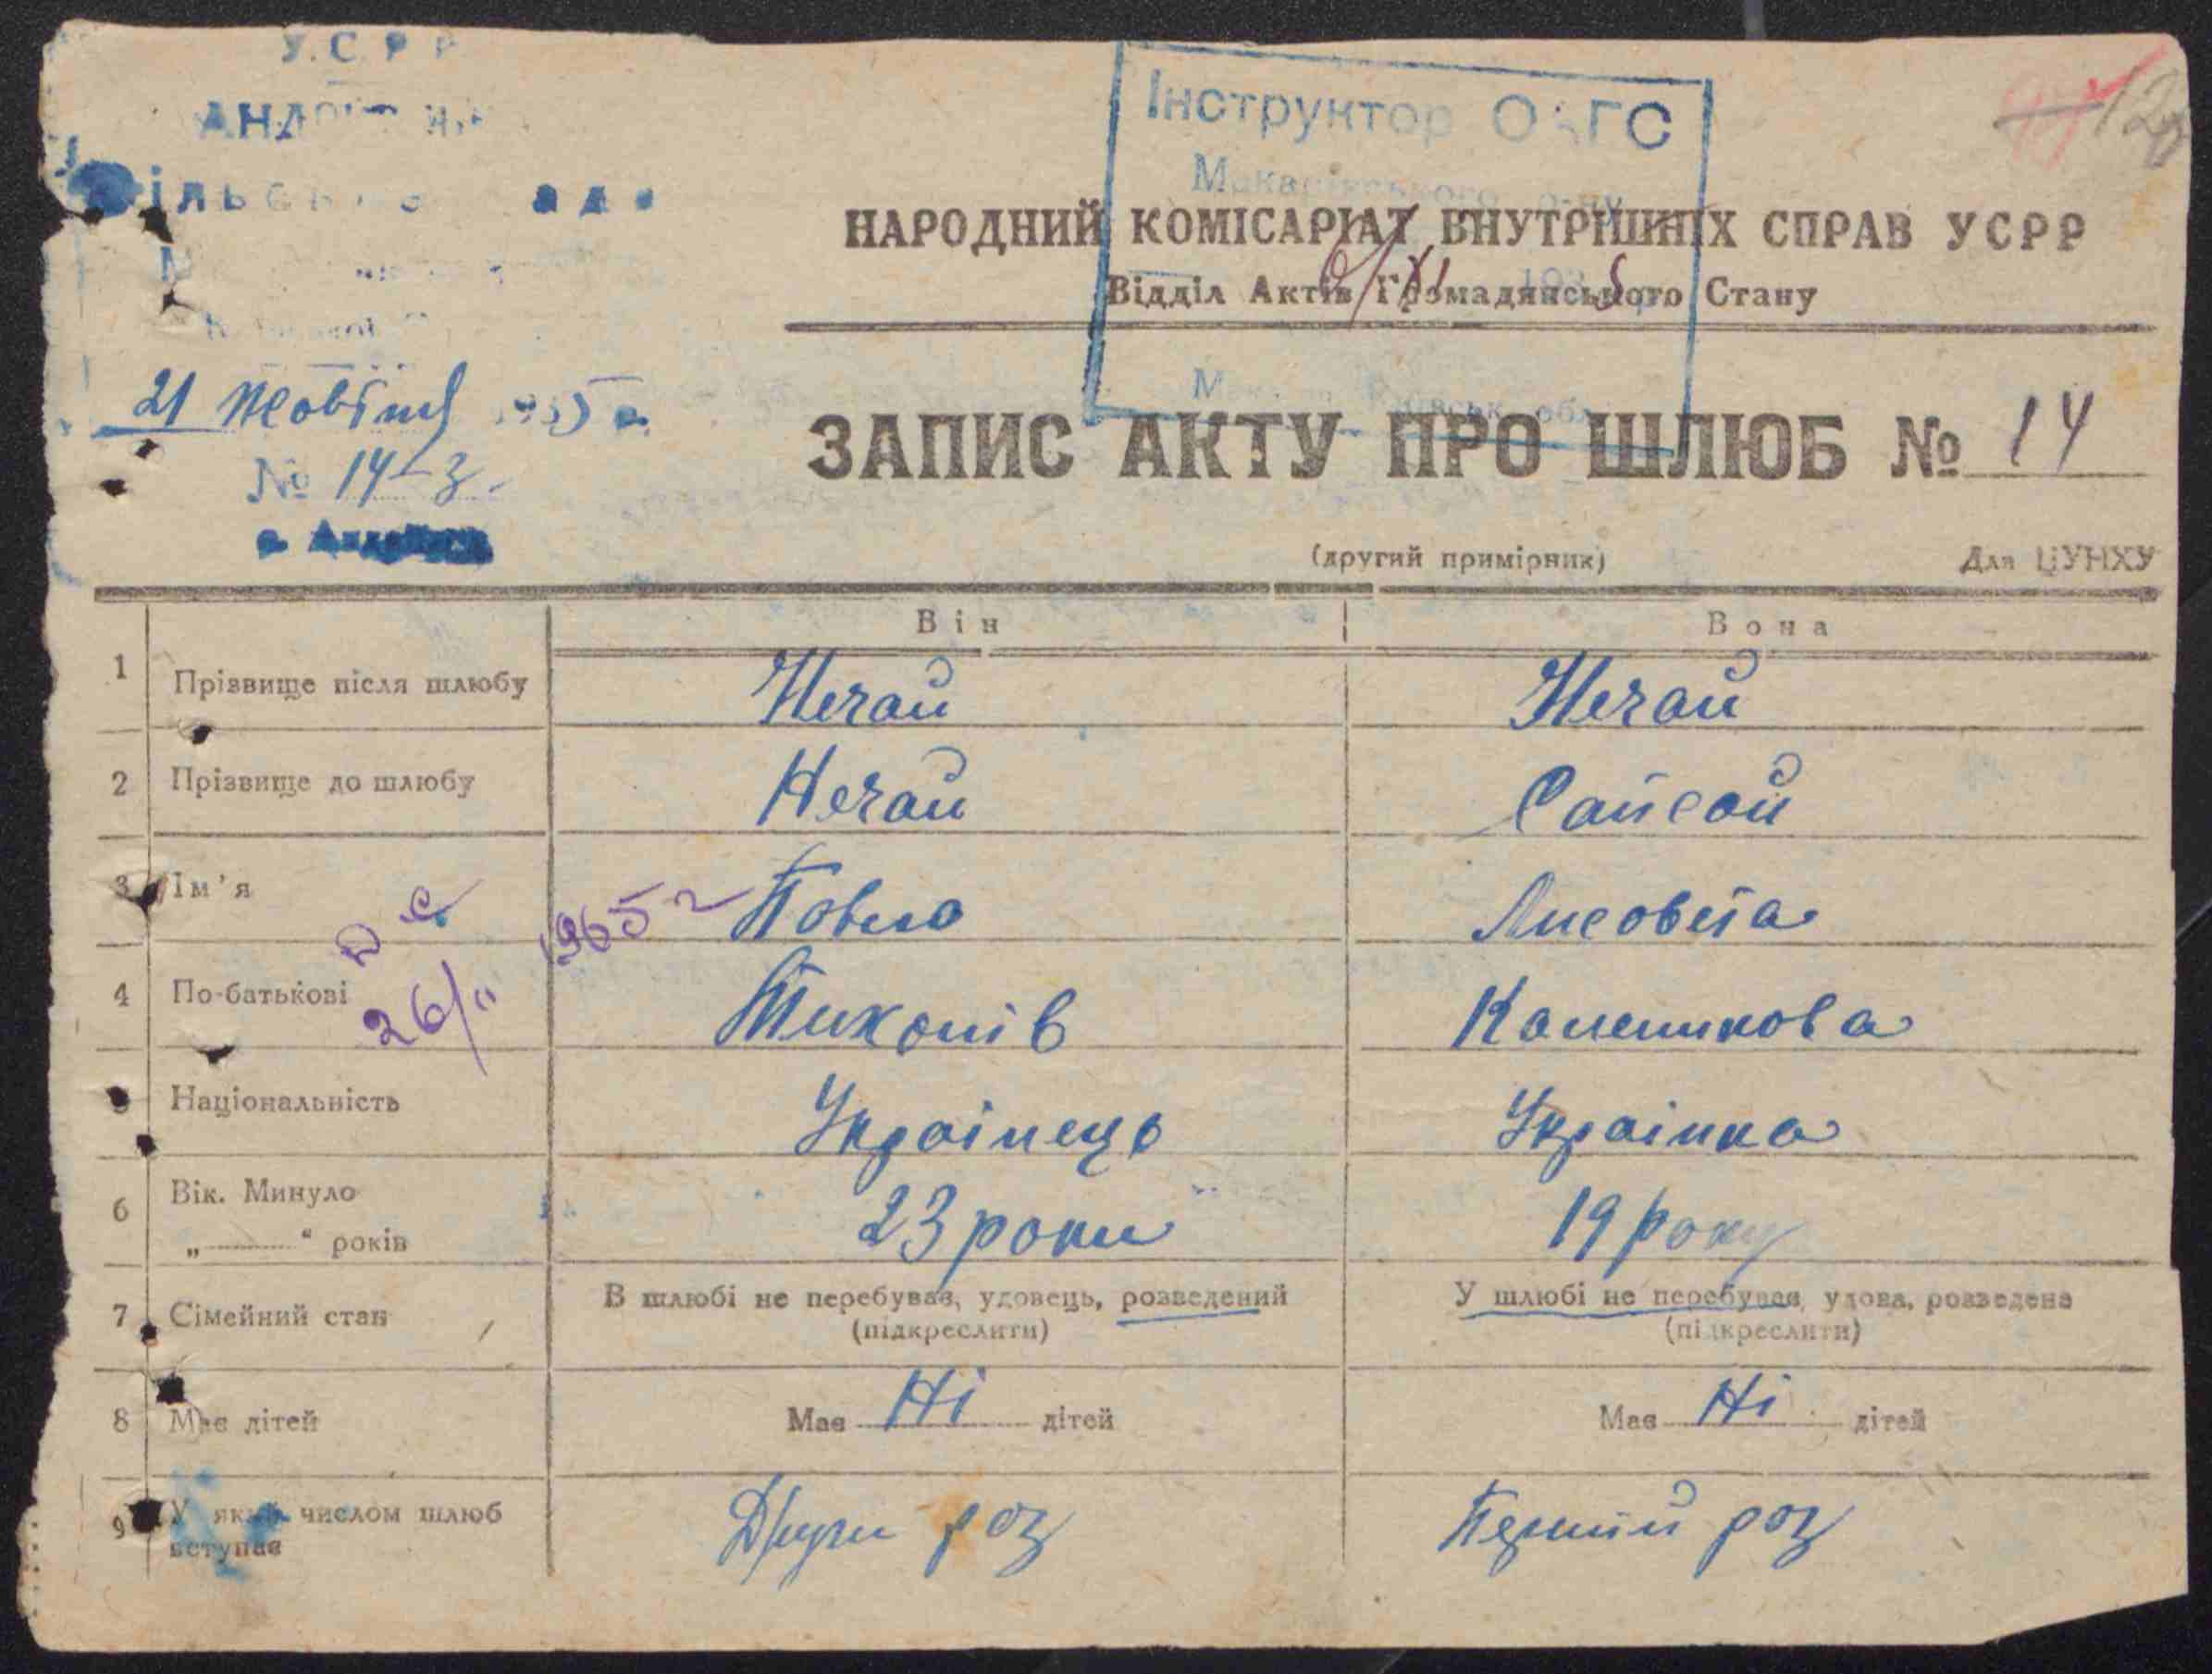 У.С.Р.Р
21 Жовтня 1935 р.
№ 14-з.
Інструктор ОАГС
Макарівського р-ну
НАРОДНИЙ КОМІСАРІАТ ВНУТРІШНІХ СПРАВ УСРР
Відділ Актів Громадянського Стану
ЗАПИС АКТУ ПРО ШЛЮБ № 14
(другий примірник) Для ЦУНХУ
Він Вона
1 Прізвище після шлюбу Нечай Нечай
2 Прізвище до шлюбу Нечай Сайсай
3 Ім'я Повло Лисовета
4 По-батькові Тихонів Каленикова
26/II 1965 г
5 Національність Українець Українка
6 Вік. Минуло
„ “ років 23 роки 19 року
7 Сімейний стан В шлюбі не перебував, удовець, розведений У шлюбі не перебувала, удова, розведена
(підкреслити) (підкреслити)
8 Має дітей Має Ні дітей Має Ні дітей
9 У яким числом шлюб Други роз Перший роз
вступає